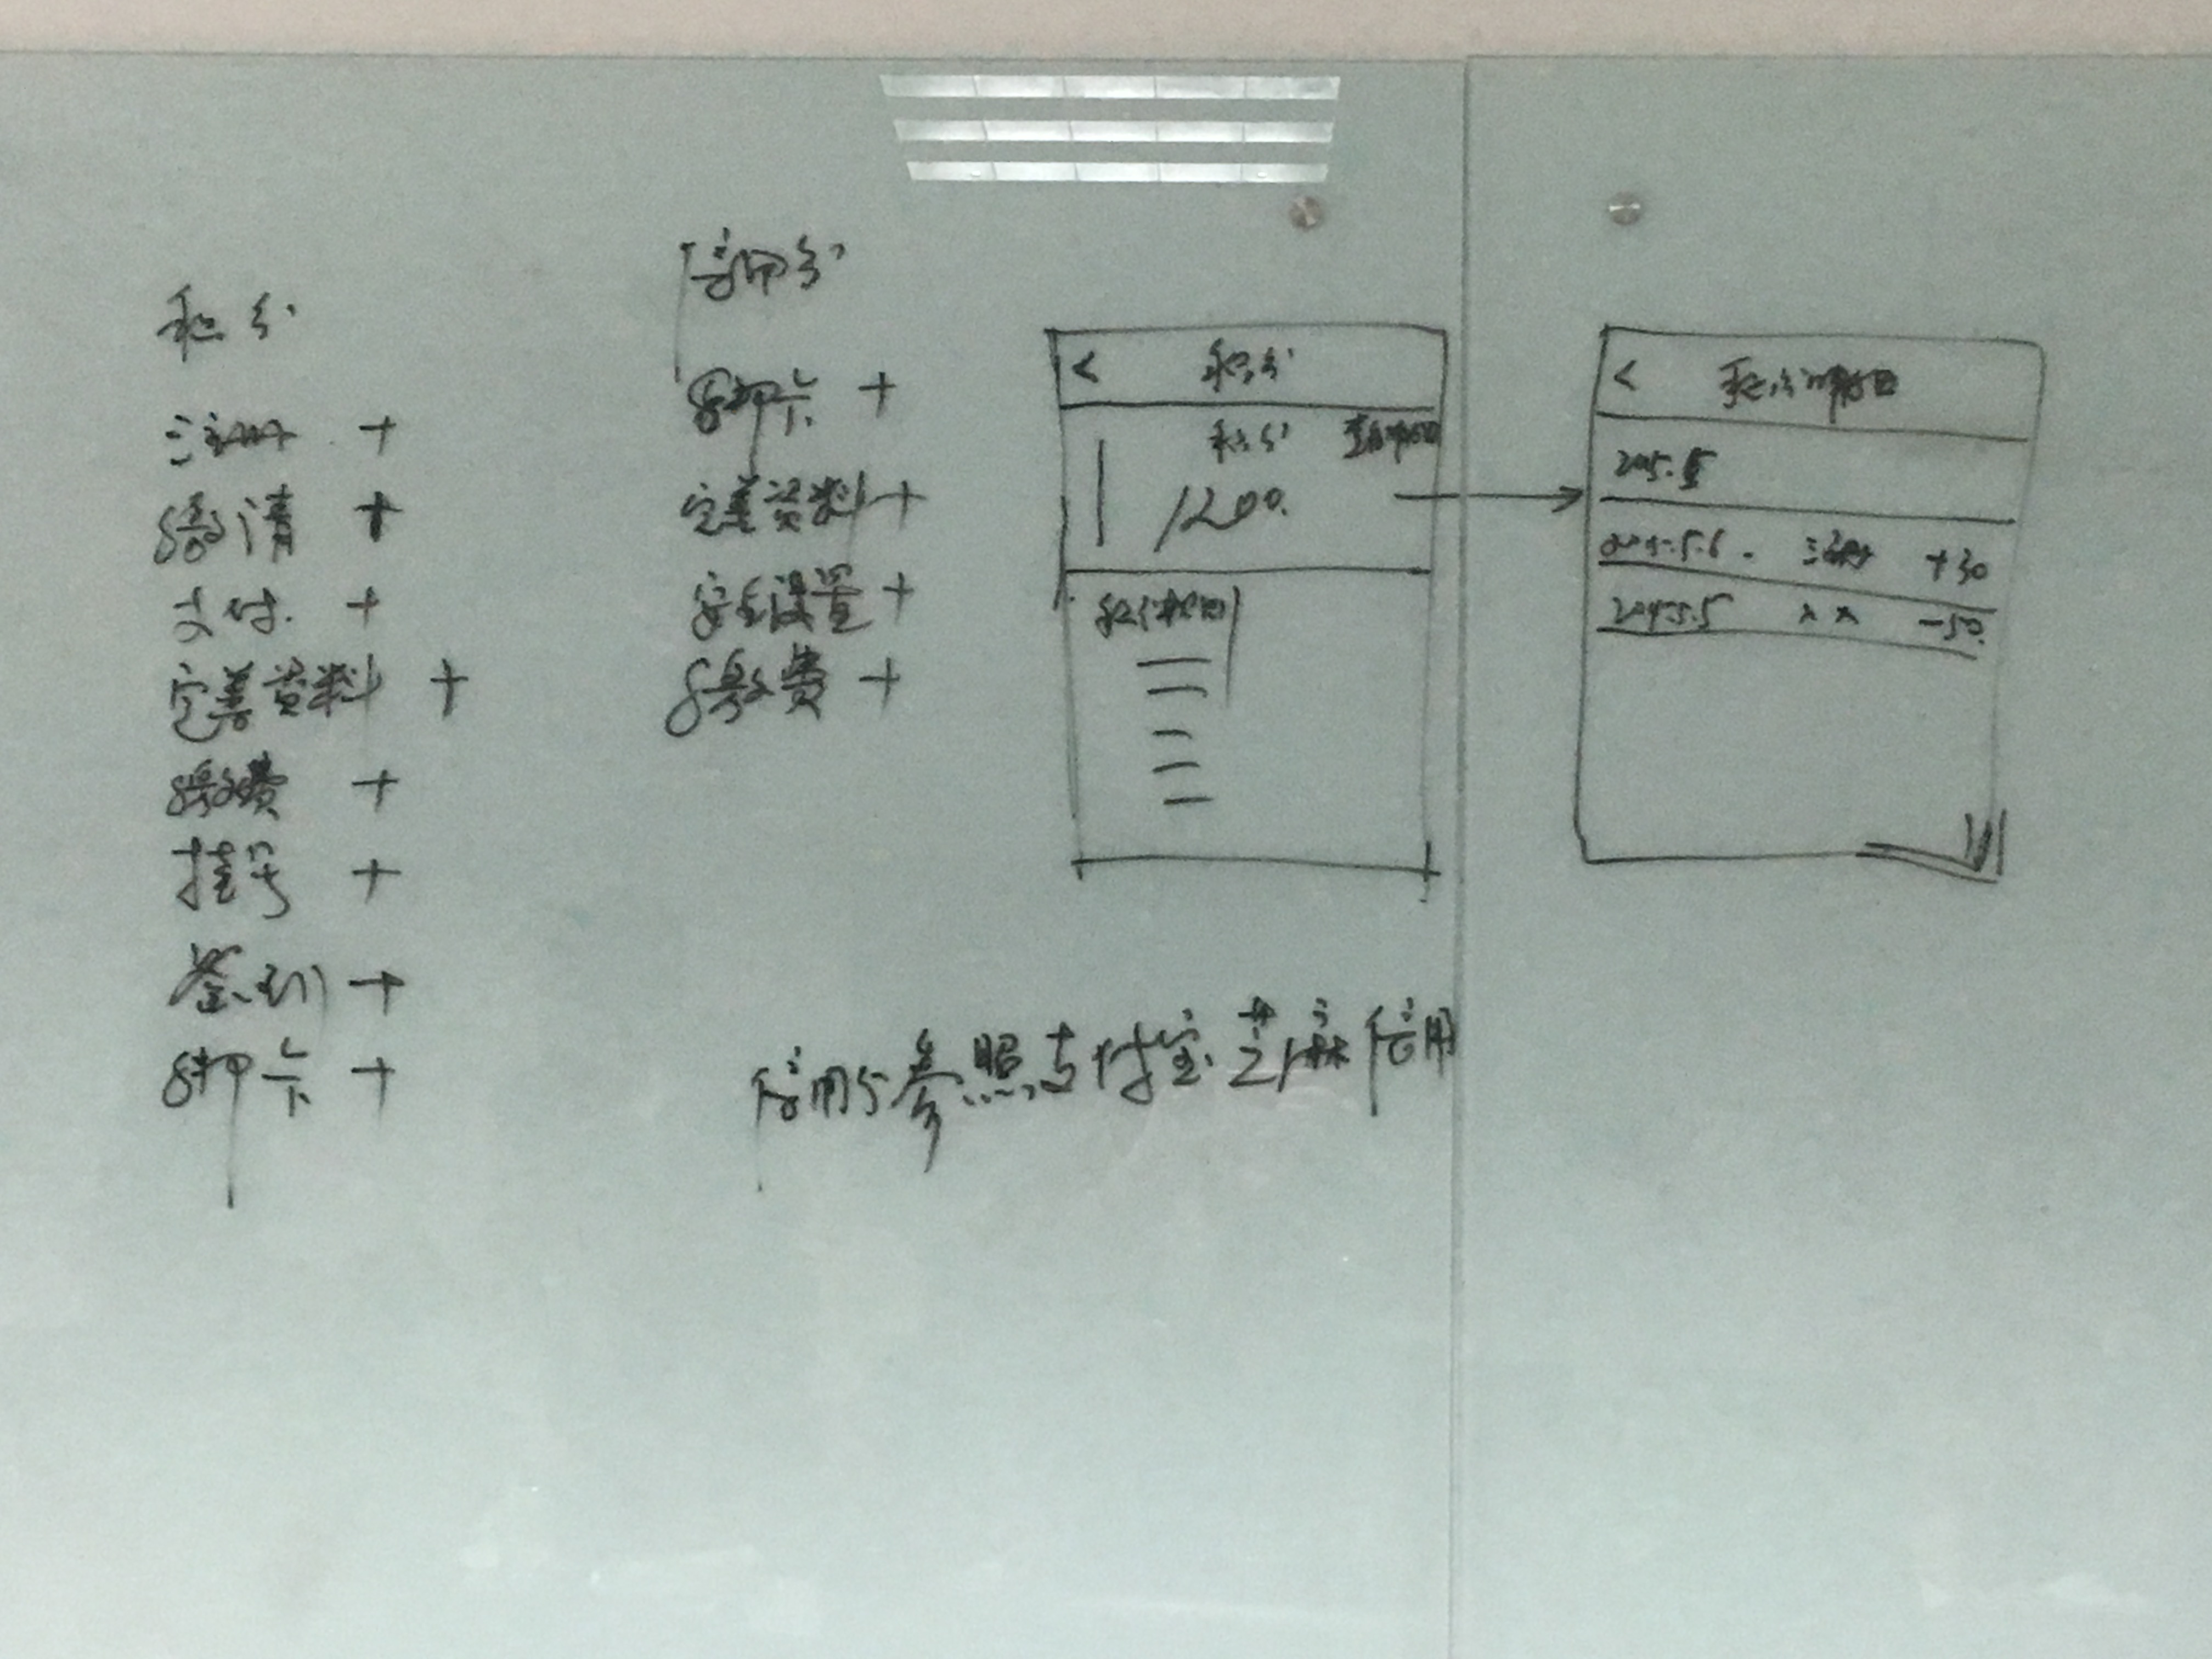 积分
注册 +
邀请 +
支付 +
完善资料 +
缴费 +
挂号 +
签到 +
绑卡 +
信用分
绑卡 +
完善资料 +
安全设置 +
缴费 +
< 积分
积分
1200.
积分规则
< 积分明细
2015.5
2015.5.6. 注册 +30
2015.5.5 XX -50.
信用分参照支付宝芝麻信用